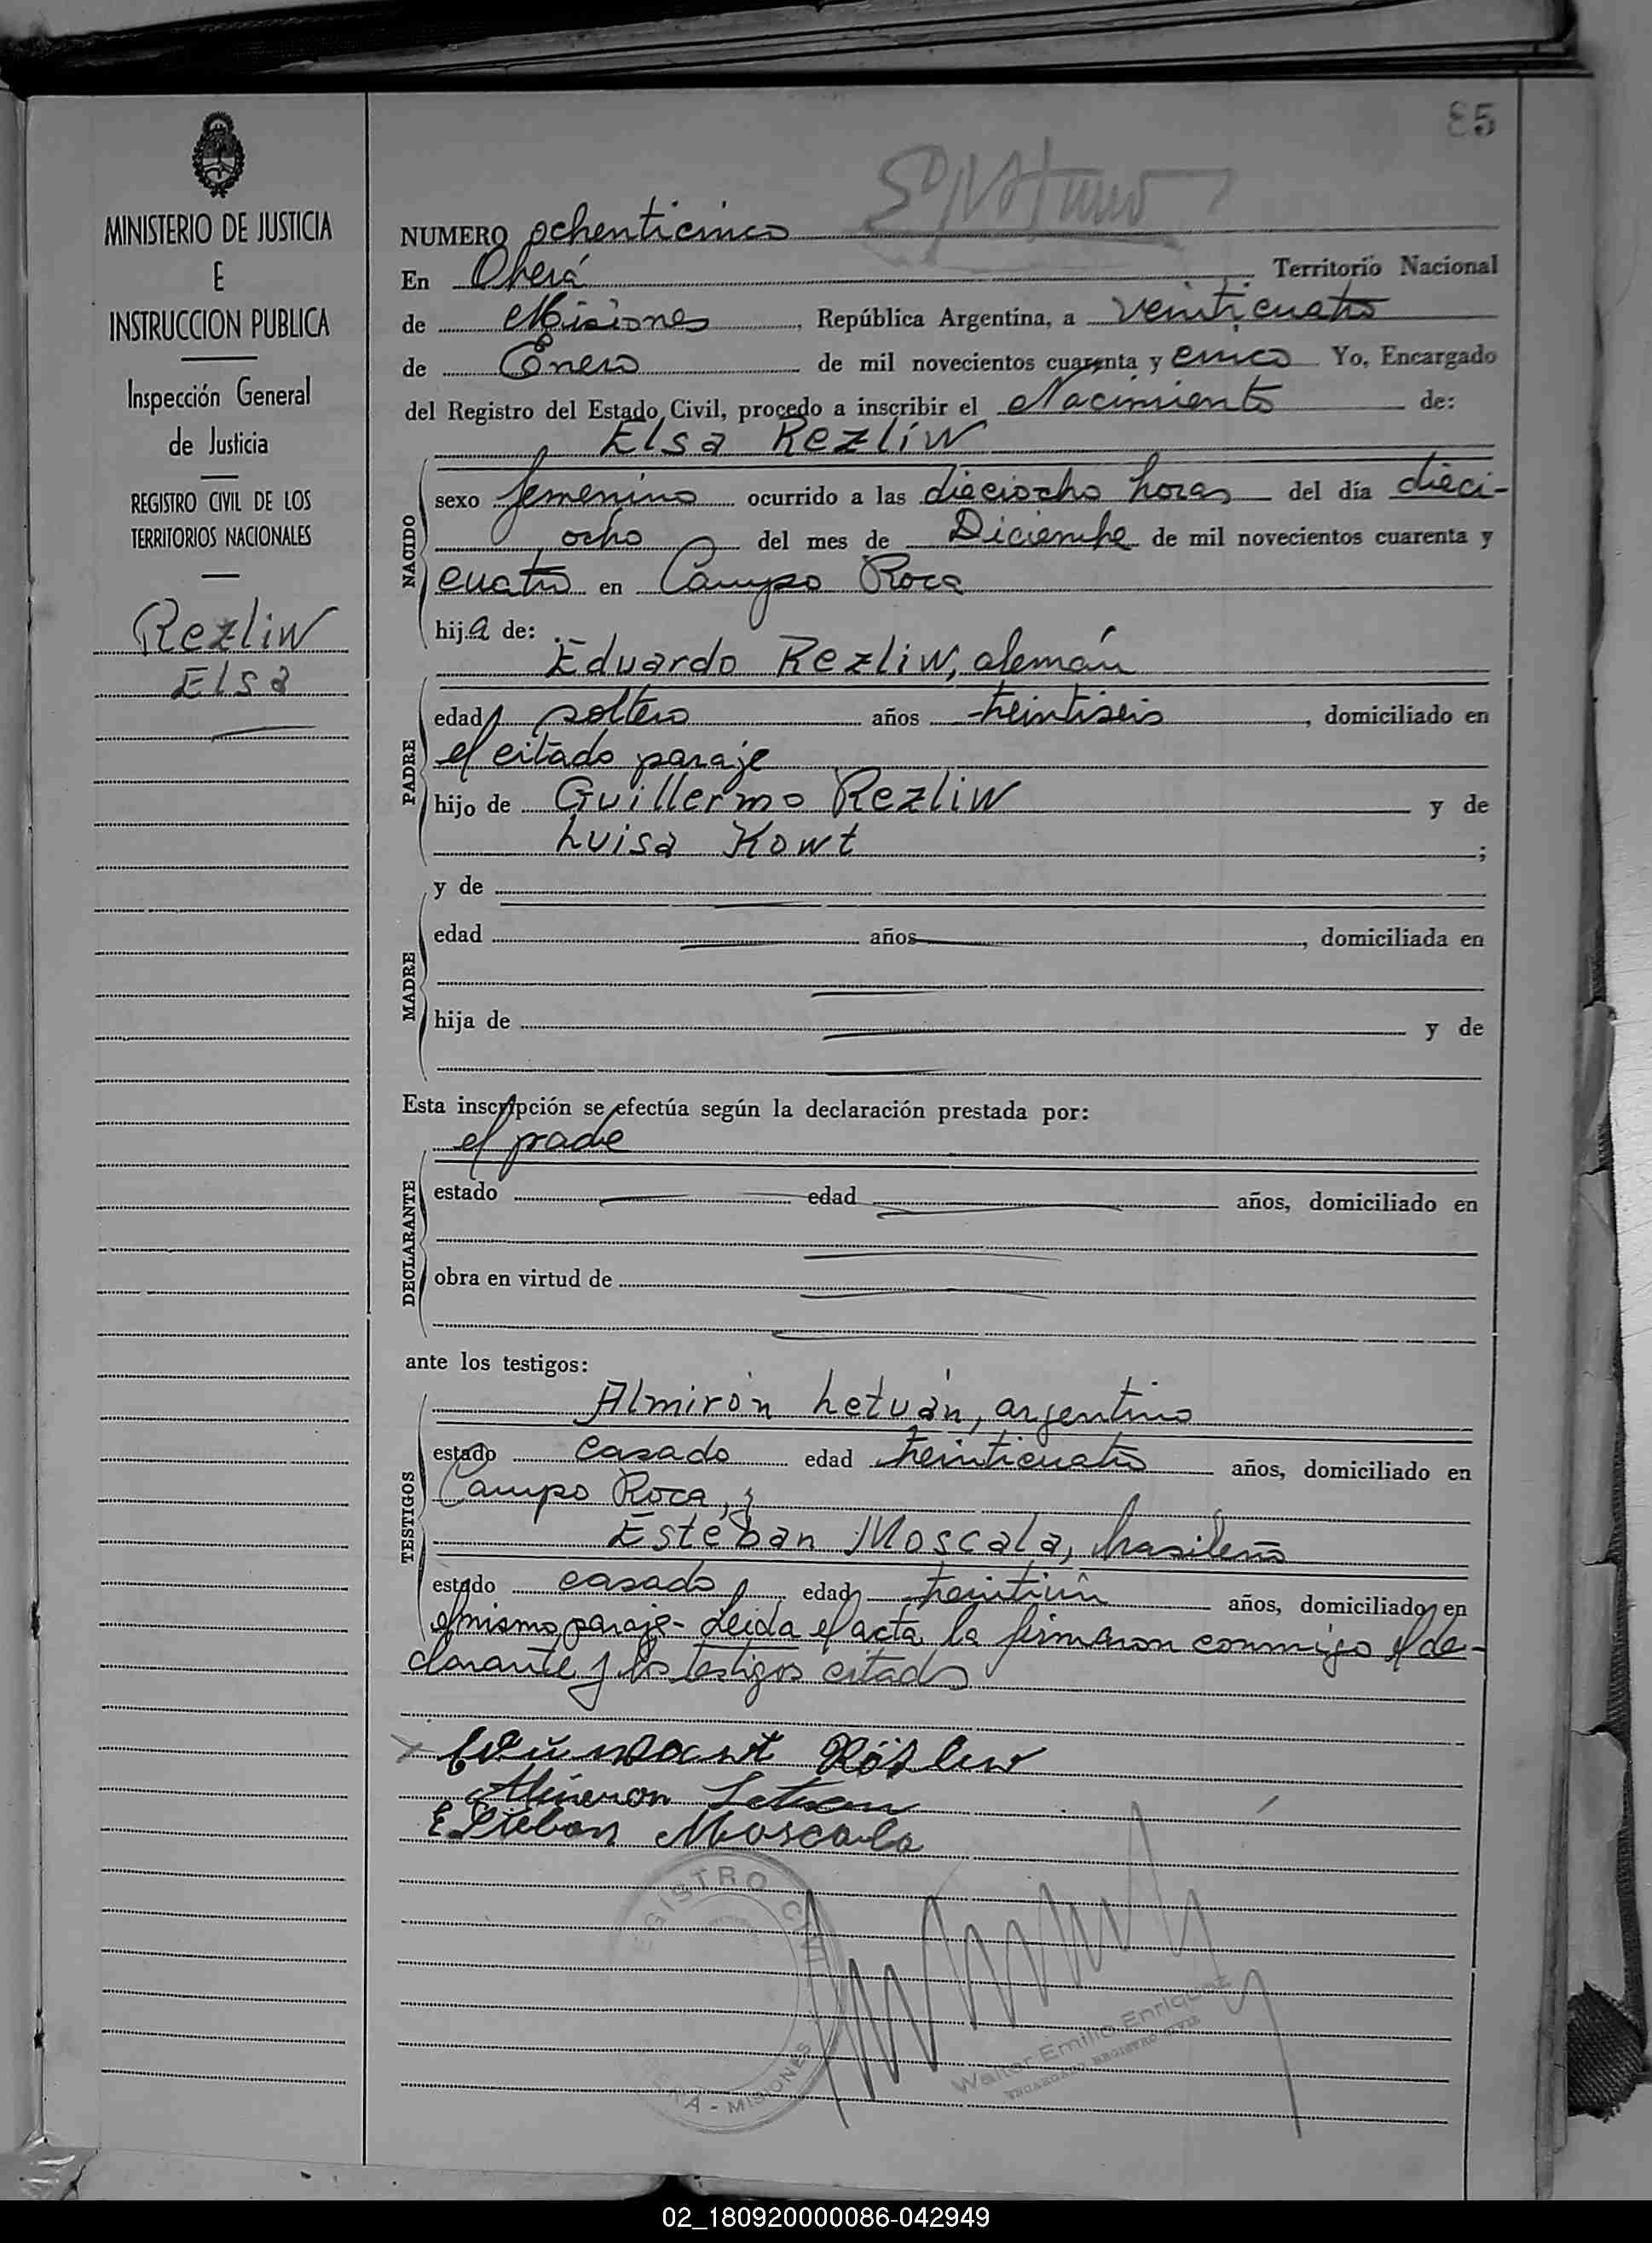 85
MINISTERIO DE JUSTICIA
E
INSTRUCCION PUBLICA
Inspección General
de Justicia
REGISTRO CIVIL DE LOS
TERRITORIOS NACIONALES
Rezliw
Elsa
NUMERO ochenticinco
En Oberá Territorio Nacional
de Misiones, República Argentina, a veinticuatro
de Enero de mil novecientos cuarenta y cinco Yo, Encargado
del Registro del Estado Civil, procedo a inscribir el Nacimiento de:
Elsa Rezliw
NACIDO
sexo femenino ocurrido a las dieciocho horas del día dieci-
ocho del mes de Diciembre de mil novecientos cuarenta y
cuatro en Campo Roca
hija de:
Eduardo Rezliw, alemán
PADRE
edad soltero años treintiseis, domiciliado en
el citado paraje
hijo de Guillermo Rezliw y de
Luisa Kowt;
MADRE
y de
edad años, domiciliada en
hija de y de
Esta inscripción se efectúa según la declaración prestada por:
el prade
DECLARANTE
estado edad años, domiciliado en
obra en virtud de
ante los testigos:
TESTIGOS
Almirón Letván, argentino
estado casado edad treinticuatro años, domiciliado en
Campo Roca, y
Esteban Moscala, brasileño
estado casado edad treintiún años, domiciliado en
el mismo paraje - Leida el acta la firmaron conmigo el de-
clarante y los testigos citados
Esteban Moscala
REGISTRO CIVIL
OBERA - MISIONES
Walter Emilio Enriquez
ENCARGADO REGISTRO CIVIL
02_180920000086-042949